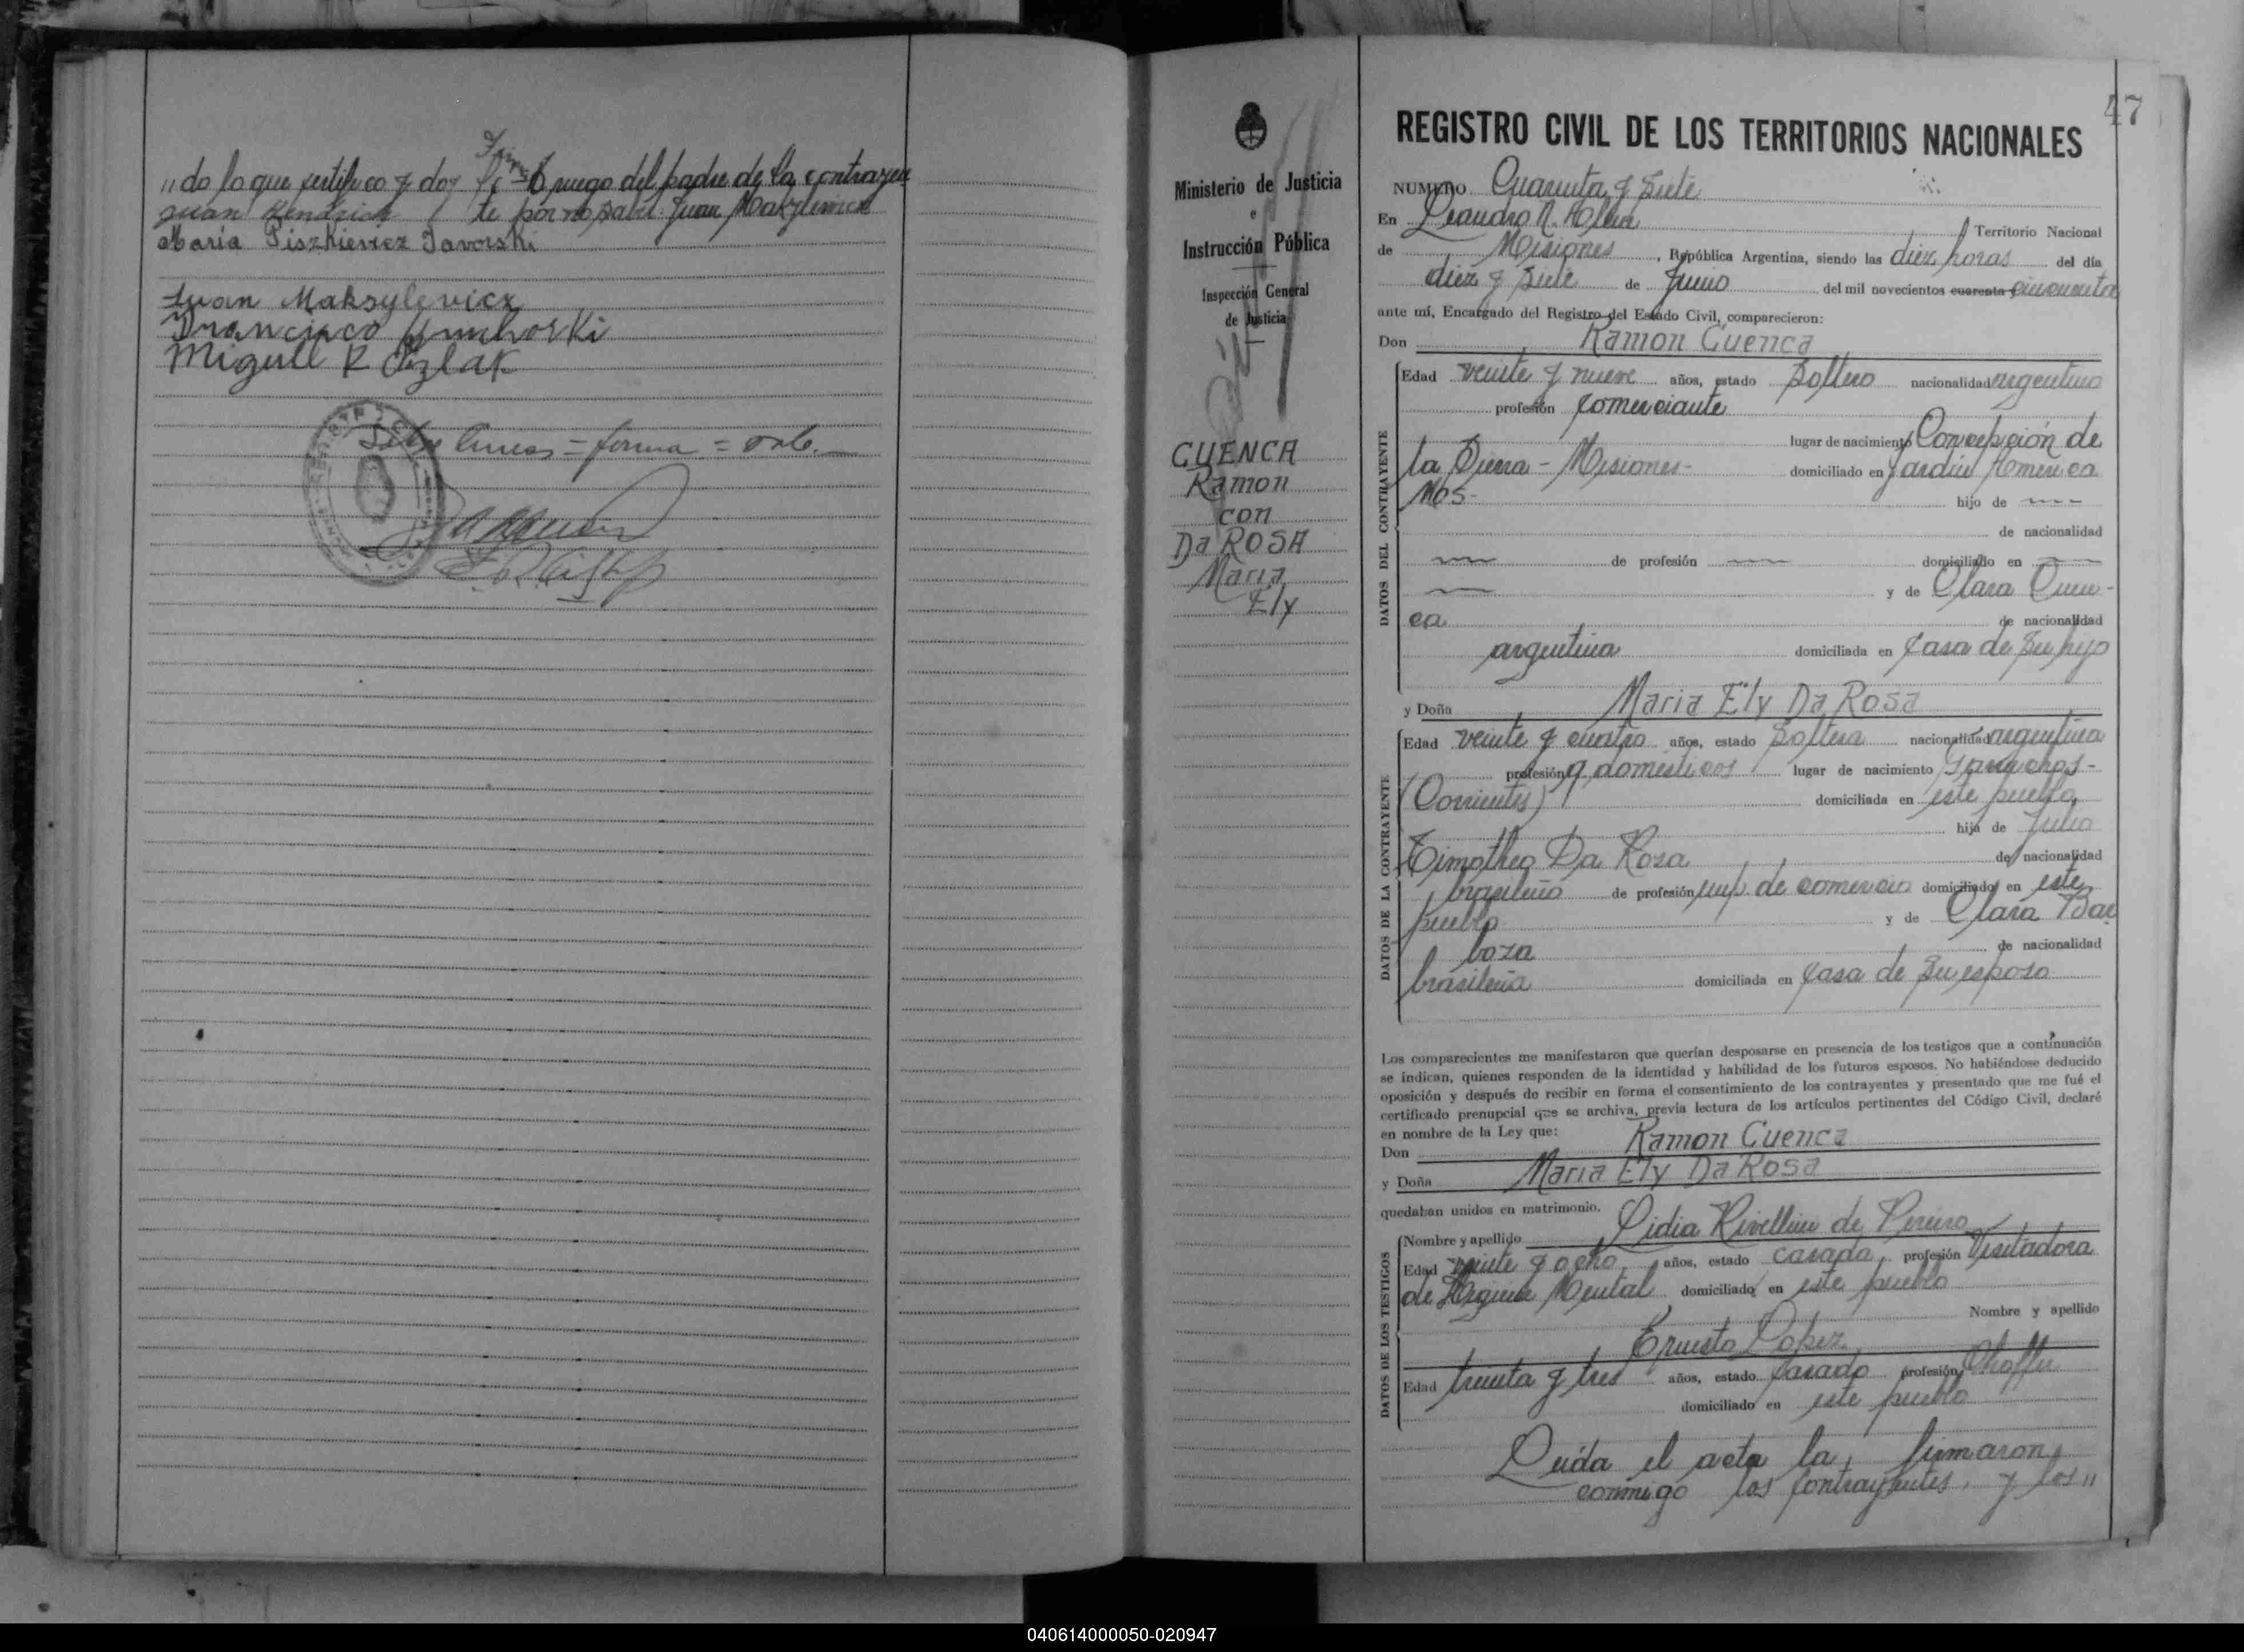 ,, do lo que certifico y doy fe = Firma A ruego del padre de la contrayen
Juan Kendzior te por no saber: Juan Maksylewicz
Maria Piszkiewicz Javorski
Juan Maksylevicz
Francisco
Miguel R Ozlak
Sobre lineas = forma = vale.
47
Ministerio de Justicia
e
Instrucción Pública
Inspección General
de Justicia
CUENCA
Ramon
con
Da ROSA
Maria
Ely
REGISTRO CIVIL DE LOS TERRITORIOS NACIONALES
NUMERO Cuarenta y siete
En Leandro N. Alem Territorio Nacional
de Misiones, República Argentina, siendo las diez horas del día
diez y siete de Junio del mil novecientos cuarenta cincuenta
ante mí, Encargado del Registro del Estado Civil, comparecieron:
Don Ramon Cuenca
DATOS DEL CONTRAYENTE
Edad veinte y nueve años, estado soltero nacionalidad argentino
profesión comerciante
lugar de nacimiento Concepción de
la Sierra - Misiones - domiciliado en Jardin America
Mos- hijo de
de nacionalidad
de profesión domiciliado en
y de Clara Cuen-
ca de nacionalidad
argentina domiciliada en casa de su hijo
y Doña Maria Ely Da Rosa
DATOS DE LA CONTRAYENTE
Edad veinte y cuatro años, estado soltera nacionalidad argentina
profesión q. domesticos lugar de nacimiento Garruchos-
(Corrientes) domiciliada en este pueblo,
hija de Julio
Timotheo Da Rosa de nacionalidad
brasileño de profesión emp. de comercio domiciliado en este
pueblo y de Clara Bar
boza de nacionalidad
brasileña domiciliada en casa de su esposo
Los comparecientes me manifestaron que querían desposarse en presencia de los testigos que a continuación
se indican, quienes responden de la identidad y habilidad de los futuros esposos. No habiéndose deducido
oposición y después de recibir en forma el consentimiento de los contrayentes y presentado que me fué el
certificado prenupcial que se archiva, previa lectura de los artículos pertinentes del Código Civil, declaré
en nombre de la Ley que:
Don Ramon Cuenca
y Doña Maria Ely Da Rosa
quedaban unidos en matrimonio.
DATOS DE LOS TESTIGOS
Nombre y apellido Lidia Rivellini de Pereiro
Edad veinte y ocho años, estado casada, profesión Visitadora
de Higiene Mental domiciliado en este pueblo
Nombre y apellido
Ernesto Lopez
Edad treinta y tres años, estado casado profesión Choffer
domiciliado en este pueblo
Leída el acta la firmaron
conmigo los contrayentes, y los ,,
040614000050-020947